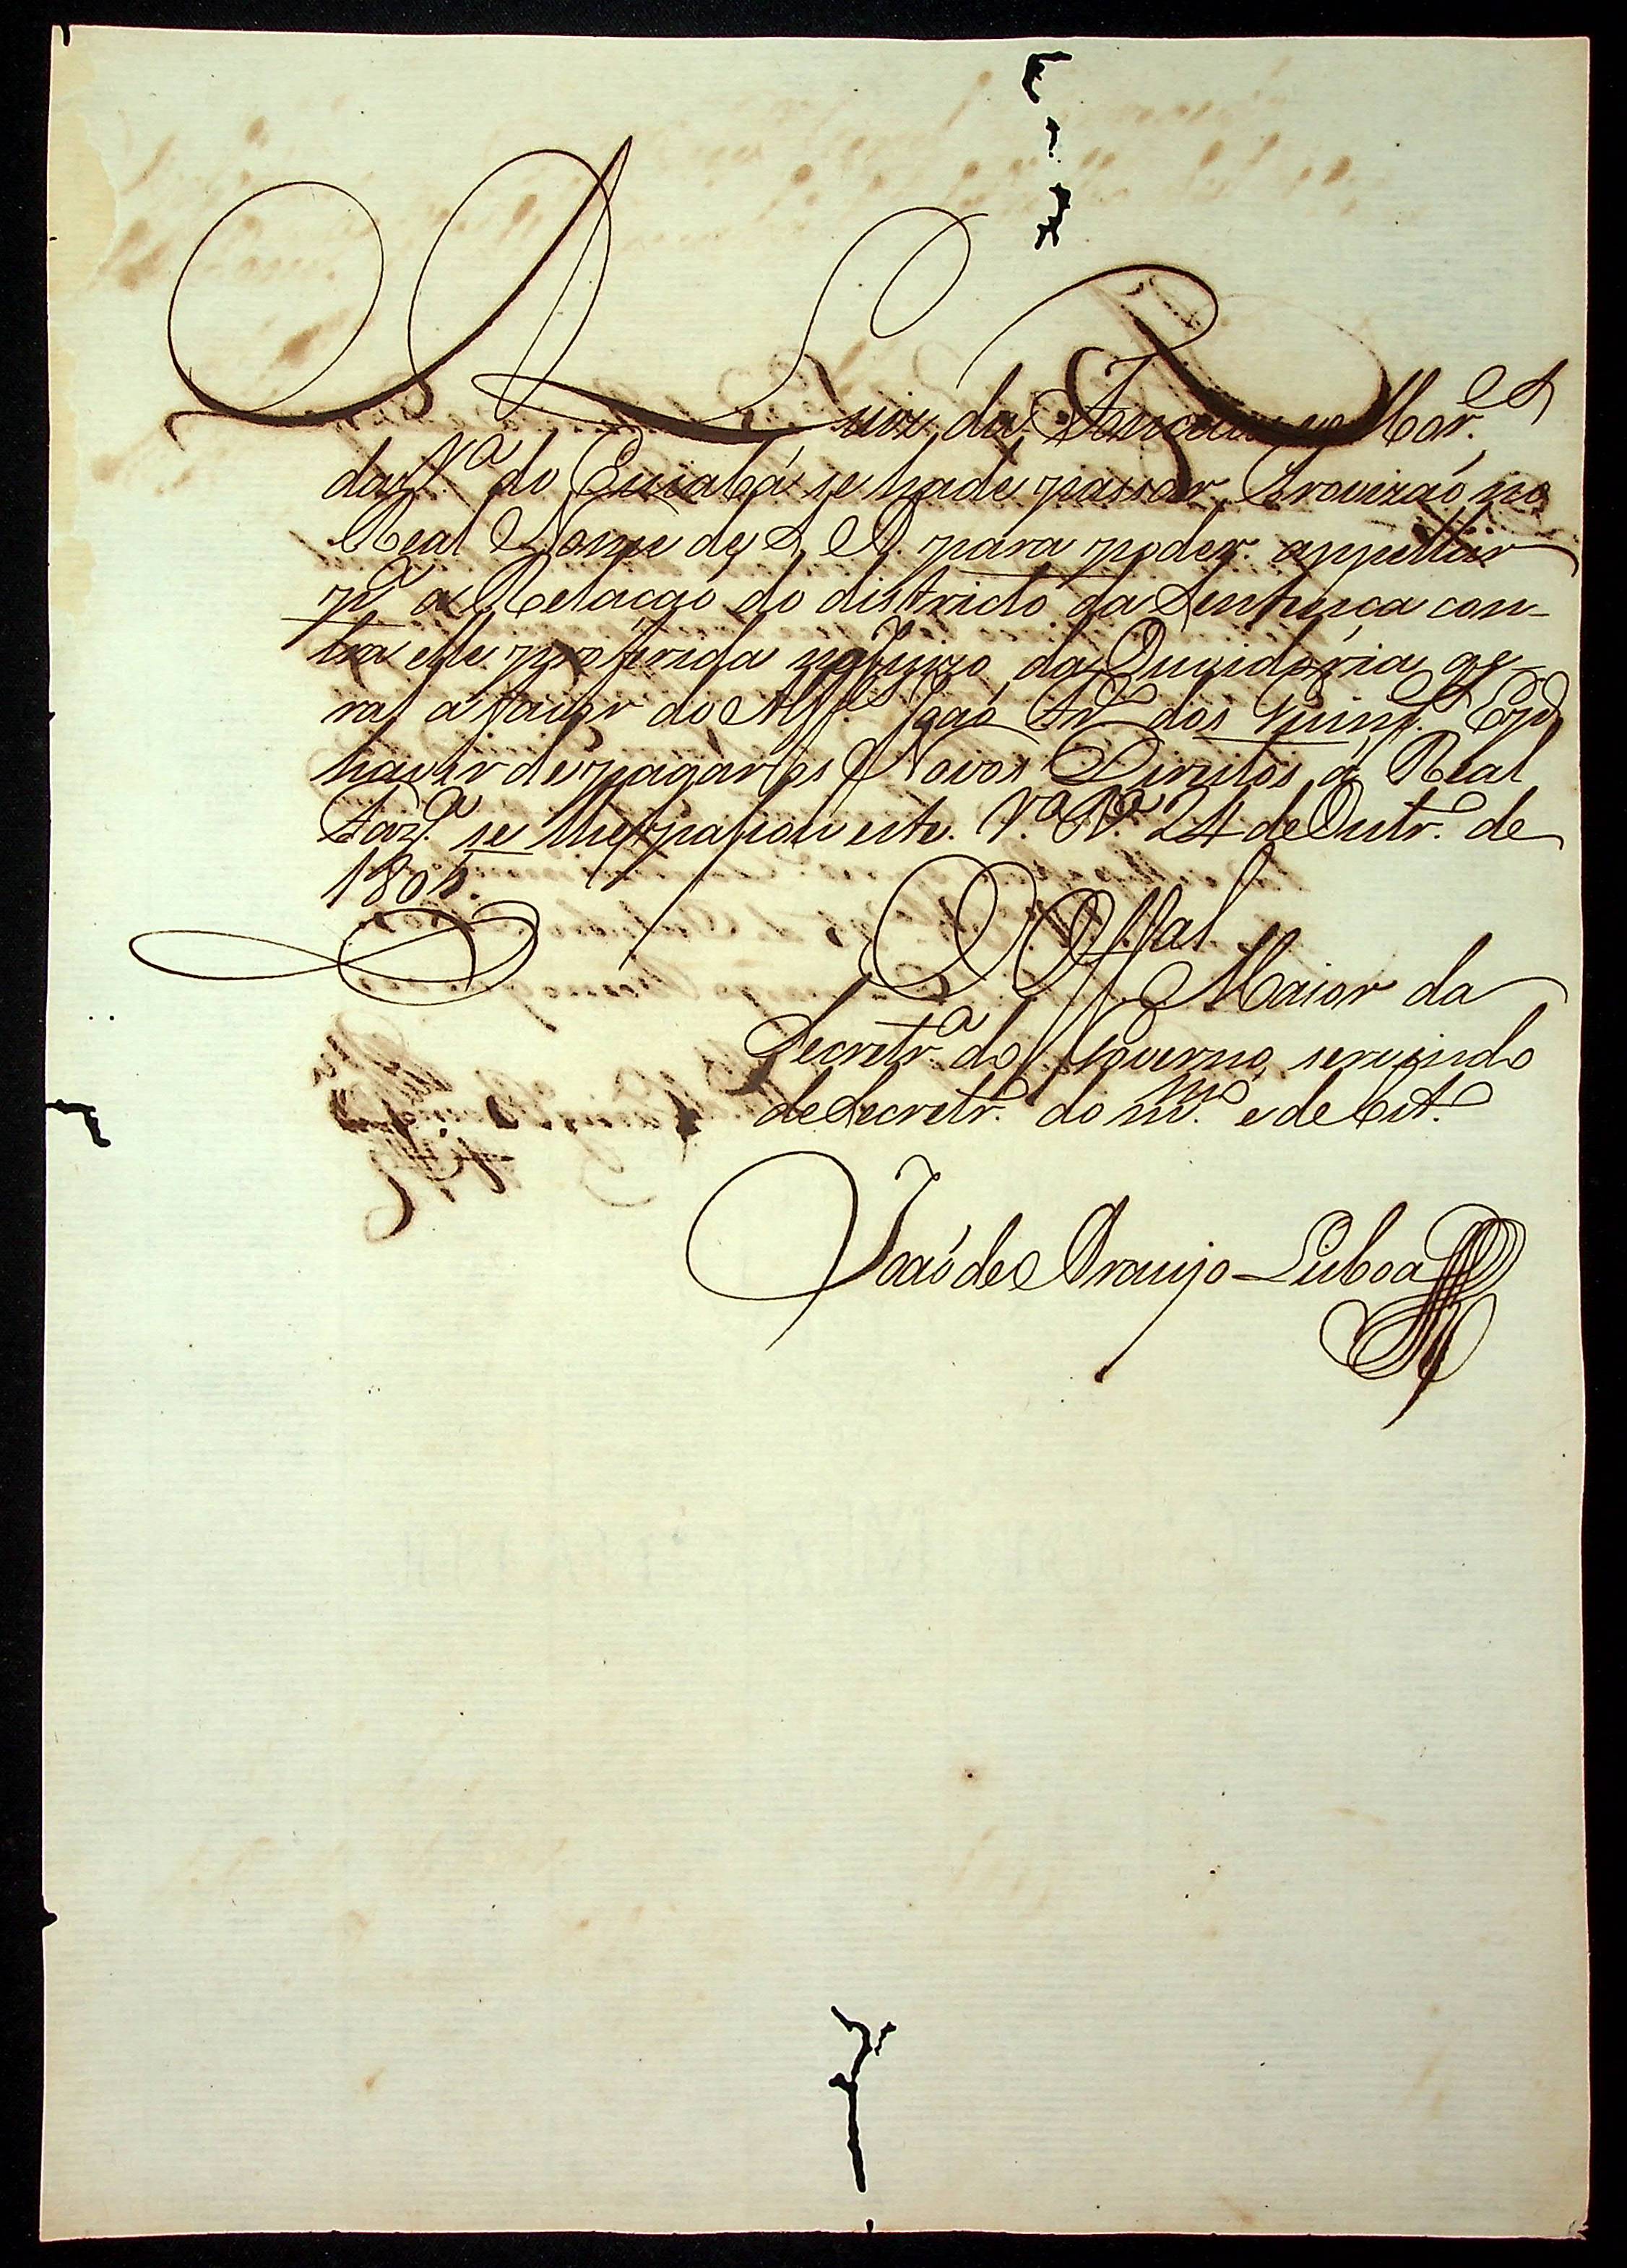 A Luiz da Fonceca e Mor.es
da V.ª do Cuiabá se hade passar Provizaó no
Real Nome de S. A. para poder appellar
p.ª a Relaçaó do districto da Sentença con-
tra elle proferida no Juizo da Ouvidoria ge-
ral a favor do Alf.es Joaó dos E p.ª
haver de pagar os Novos Direitos á Real
Faz.ª se lhe passou este. V.ª B.ª 24 de Outr.º de
1805.
O Off.al
Maior da
Secretr.ª do Governo, servindo
de Secretr.º do m.mo e de Est.º
Joaó de Araujo Lisboa